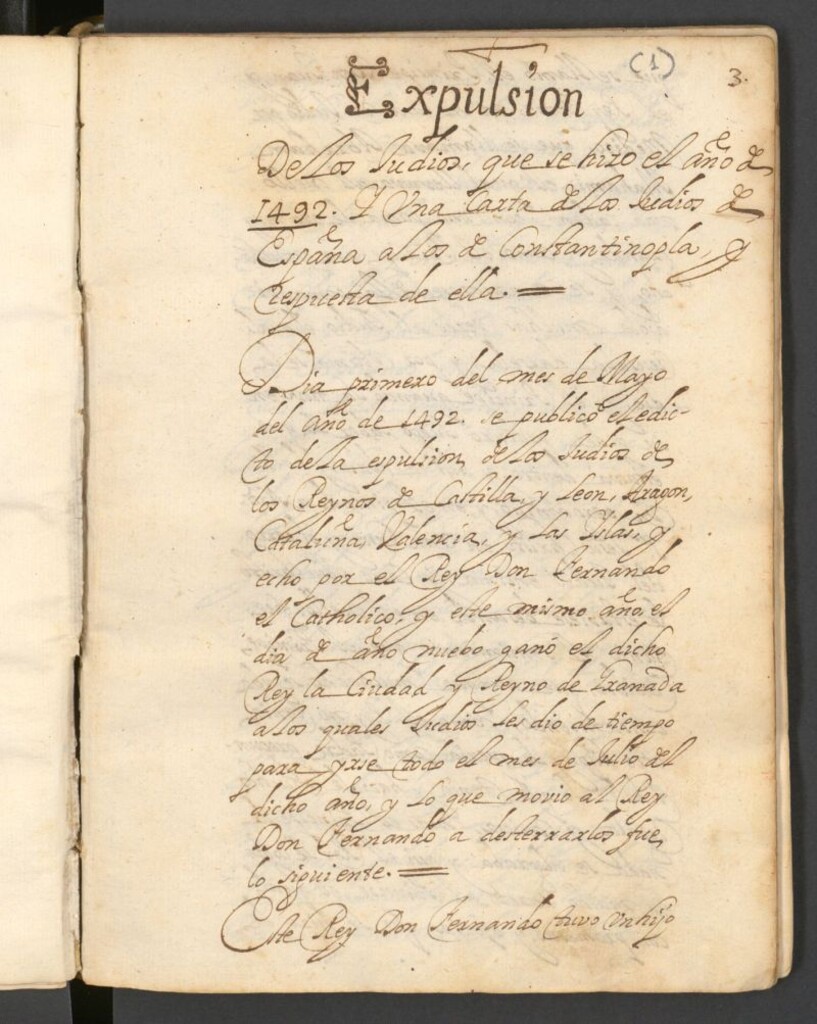 (1)
3.
Expulsion
De los Judios, que se hizo el año de
1492. Y Una Carta de los Judios de
España a los de Constantinopla, y
respuesta de ella.
Dia primero del mes de Mayo
del año de 1492. se publicó el edic-
to de la espulsion de los Judios de
los Reynos de Castilla, y Leon, Aragon,
Cataluña, Valencia, y las Islas, y
echo por el Rey Don Fernando
el Catholico, y este mismo año, el
dia de año nuebo ganó el dicho
Rey la Ciudad y Reyno de Granada
a los quales Judios les dio de tiempo
para yrse todo el mes de Julio del
dicho año, y lo que movio al Rey
Don Fernando a desterrarlos fue
lo siguiente.
Este Rey Don Fernando tuvo un hijo